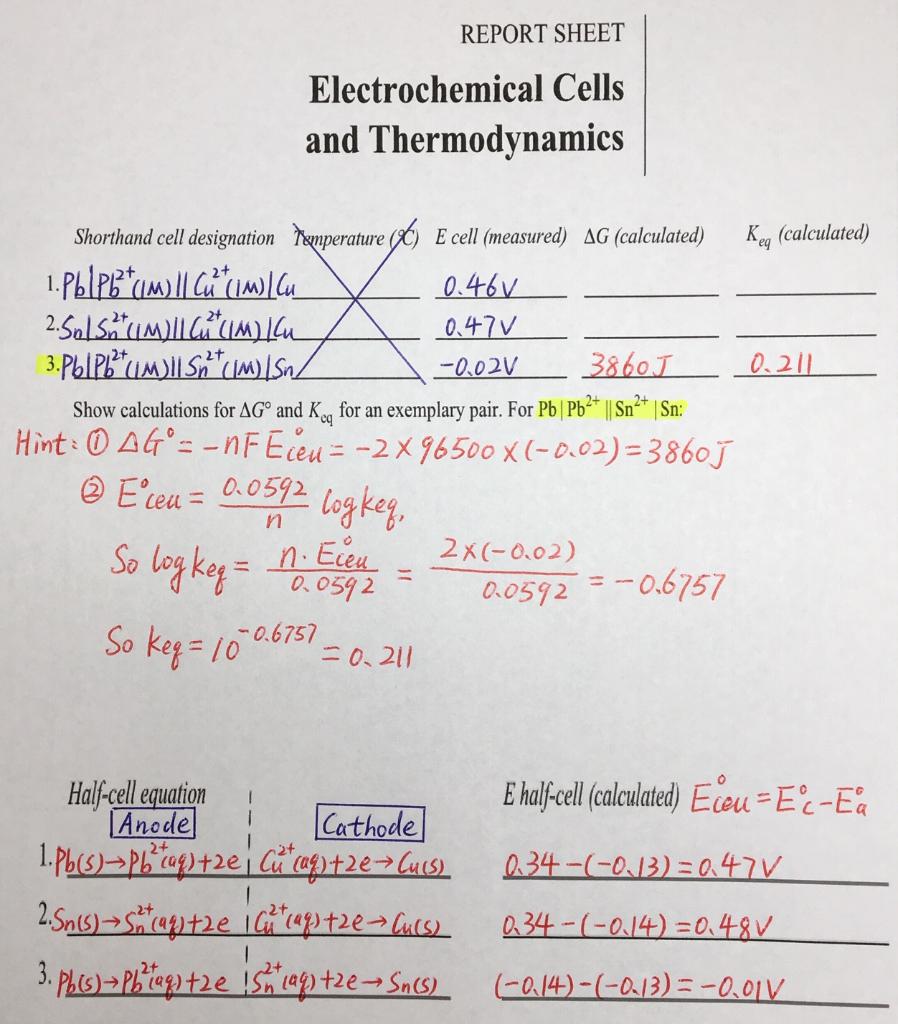 REPORT SHEET
Electrochemical Cells
and Thermodynamics
Shorthand cell designation Temperature (°C) E cell (measured) ΔG (calculated) Keq (calculated)
1. Pb|Pb²⁺(1M)||Cu²⁺(1M)|Cu 0.46V
2. Sn|Sn²⁺(1M)||Cu²⁺(1M)|Cu 0.47V
3. Pb|Pb²⁺(1M)||Sn²⁺(1M)|Sn -0.02V 3860J 0.211
Show calculations for ΔG° and Keq for an exemplary pair. For Pb | Pb²⁺ || Sn²⁺ | Sn:
Hint: ① ΔG° = -nFE°cell = -2×96500×(-0.02) = 3860J
② E°cell = 0.0592/n log keq,
So log keq = n·E°cell/0.0592 = 2×(-0.02)/0.0592 = -0.6757
So keq = 10^-0.6757 = 0.211
Half-cell equation E half-cell (calculated) E°cell = E°c - E°a
Anode Cathode
1. Pb(s)→Pb²⁺(aq)+2e | Cu²⁺(aq)+2e→Cu(s) 0.34-(-0.13)=0.47V
2. Sn(s)→Sn²⁺(aq)+2e | Cu²⁺(aq)+2e→Cu(s) 0.34-(-0.14)=0.48V
3. Pb(s)→Pb²⁺(aq)+2e | Sn²⁺(aq)+2e→Sn(s) (-0.14)-(-0.13)=-0.01V